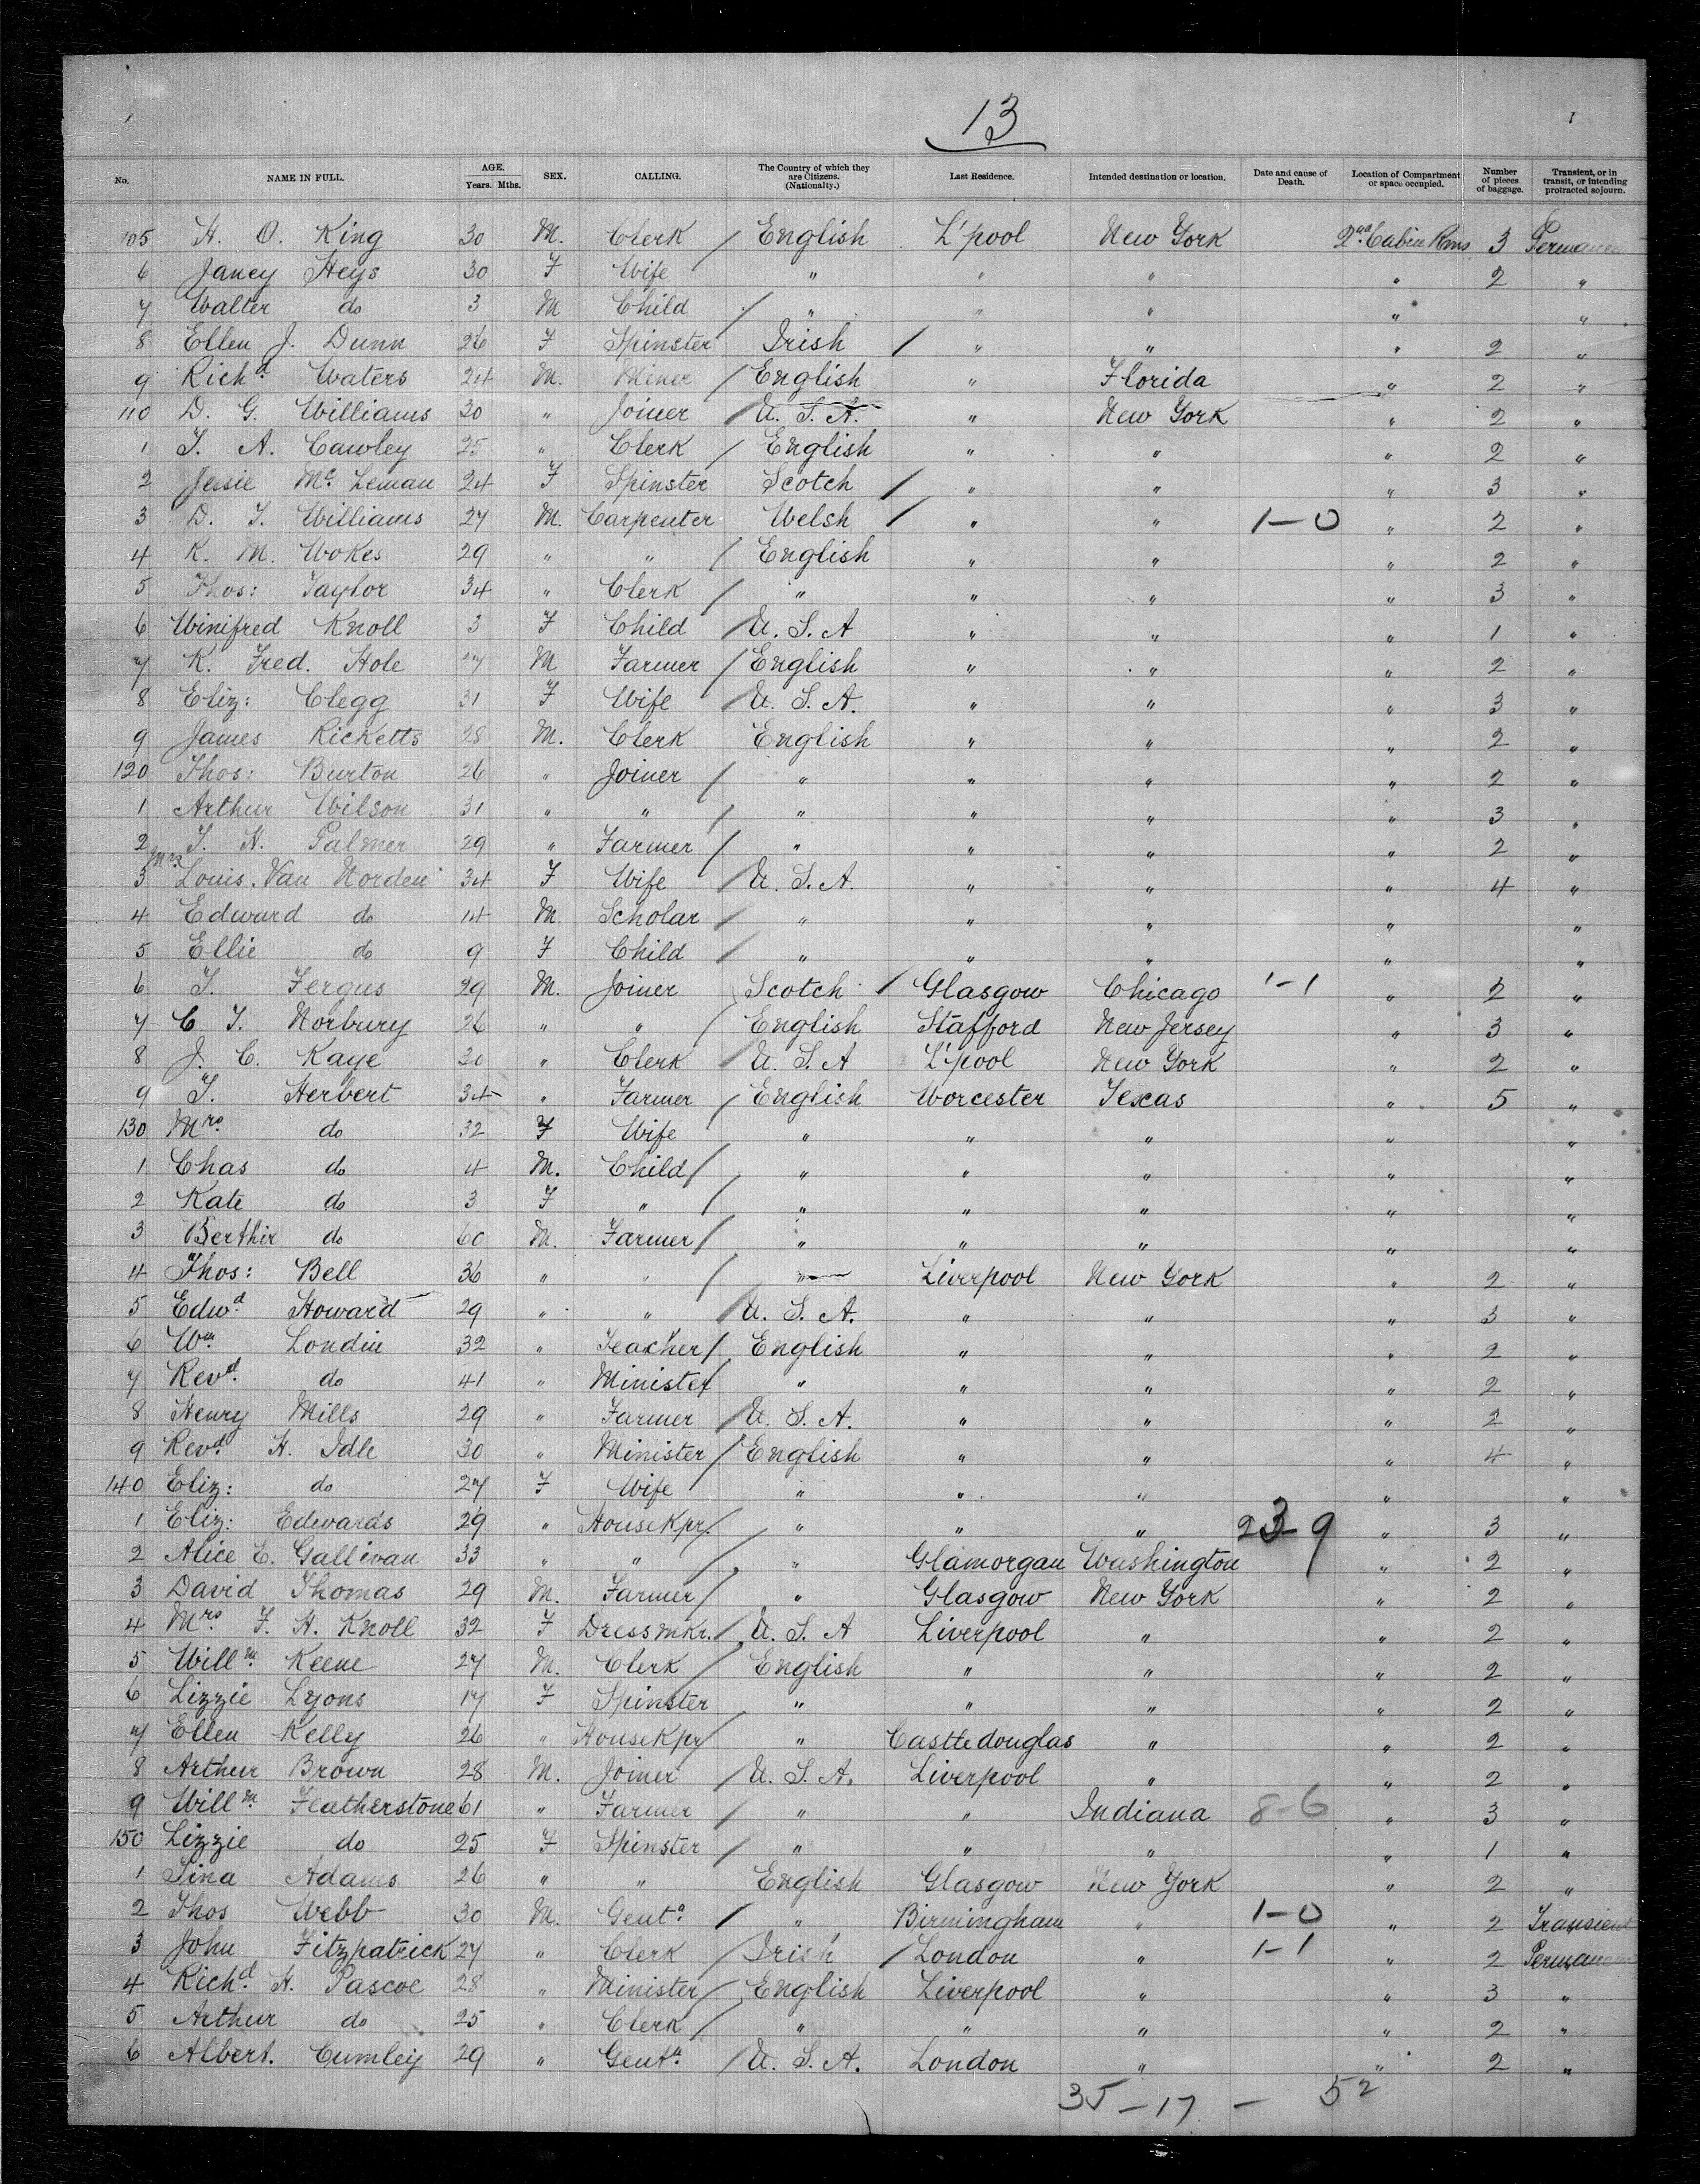 13
No. NAME IN FULL. AGE. Years. Mths. SEX. CALLING. The Country of which they are Citizens. (Nationality.) Last Residence. Intended destination or location. Date and cause of Death. Location of Compartment or space occupied. Number of pieces of baggage. Transient, or in transit, or intending protracted sojourn.
105 H. O. King 30 M. Clerk English L'pool New York 2nd Cabin Rms 3 Permanent
6 Janey Heys 30 F Wife " " " " 2 "
7 Walter do 3 M Child / " " " " "
8 Ellen J. Dunn 26 F Spinster Irish / " " " 2 "
9 Richd. Waters 24 M. Miner / English " Florida " 2 "
110 D. G. Williams 30 " Joiner / U. S. A. " New York " 2 "
1 T. A. Cawley 25 " Clerk / English " " " 2 "
2 Jessie Mc Leman 24 F Spinster Scotch / " " " 3 "
3 D. T. Williams 27 M. Carpenter Welsh / " " 1-0 " 2 "
4 K. M. Wokes 29 " " / English " " " 2 "
5 Thos: Taylor 34 " Clerk / " " " " 3 "
6 Winifred Knoll 3 F Child / U. S. A " " " 1 "
7 K. Fred. Hole 27 M Farmer / English " " " 2 "
8 Eliz: Clegg 31 F Wife / U. S. A. " " " 3 "
9 James Ricketts 28 M. Clerk English " " " 2 "
120 Thos: Burton 26 " Joiner / " " " " 2 "
1 Arthur Wilson 31 " " / " " " " 3 "
2 T. H. Palmer 29 " Farmer / " " " " 2 "
3 Mrs Louis. Van Norden 34 F Wife / U. S. A. " " " 4 "
4 Edward do 14 M Scholar / " " " " "
5 Ellie do 9 F Child / " " " " "
6 T. Fergus 29 M. Joiner Scotch / Glasgow Chicago 1-1 " 2 "
7 C T. Norbury 26 " " / English Stafford New Jersey " 3 "
8 J. C. Kaye 30 " Clerk / U. S. A L'pool New York " 2 "
9 T. Herbert 34 " Farmer / English Worcester Texas " 5 "
130 Mrs. do 32 F Wife " " " " "
1 Chas do 4 M. Child / " " " " "
2 Kate do 3 F " / " " " " "
3 Berthir do 60 M. Farmer / " " " " "
4 Thos: Bell 36 " " / " Liverpool New York " 2 "
5 Edwd. Howard 29 " " / U. S. A. " " " 3 "
6 Wm Londin 32 " Teacher / English " " " 2 "
7 Revd. do 41 " Minister / " " " " 2 "
8 Henry Mills 29 " Farmer / U. S. A. " " " 2 "
9 Revd. H. Idle 30 " Minister / English " " " 4 "
140 Eliz: do 27 F Wife " " " " "
1 Eliz: Edwards 29 " HouseKpr. / " " " 23-9 " 3 "
2 Alice E. Gallivan 33 " " / " Glamorgan Washington " 2 "
3 David Thomas 29 M. Farmer / " Glasgow New York " 2 "
4 Mrs. F. H. Knoll 32 F Dressmkr. / U. S. A Liverpool " " 2 "
5 Willm. Keene 27 M. Clerk / English " " " 2 "
6 Lizzie Lyons 17 F Spinster " " " " 2 "
7 Ellen Kelly 26 " HouseKpr / " Castledouglas " " 2 "
8 Arthur Brown 28 M. Joiner / U. S. A. Liverpool " " 2 "
9 Willm. Featherstone 61 " Farmer / " " Indiana 8-6 " 3 "
150 Lizzie do 25 F Spinster / " " " " 1 "
1 Tina Adams 26 " " English Glasgow New York " 2 "
2 Thos Webb 30 M. Gentn / " Birmingham " 1-0 " 2 Transient
3 John Fitzpatrick 27 " Clerk / Irish / London " 1-1 " 2 Permanent
4 Richd. H. Pascoe 28 " Minister / English Liverpool " " 3 "
5 Arthur do 25 " Clerk / " " " " 2 "
6 Albert. Cumley 29 " Gentn. / U. S. A. London " " 2 "
35 - 17 - 52